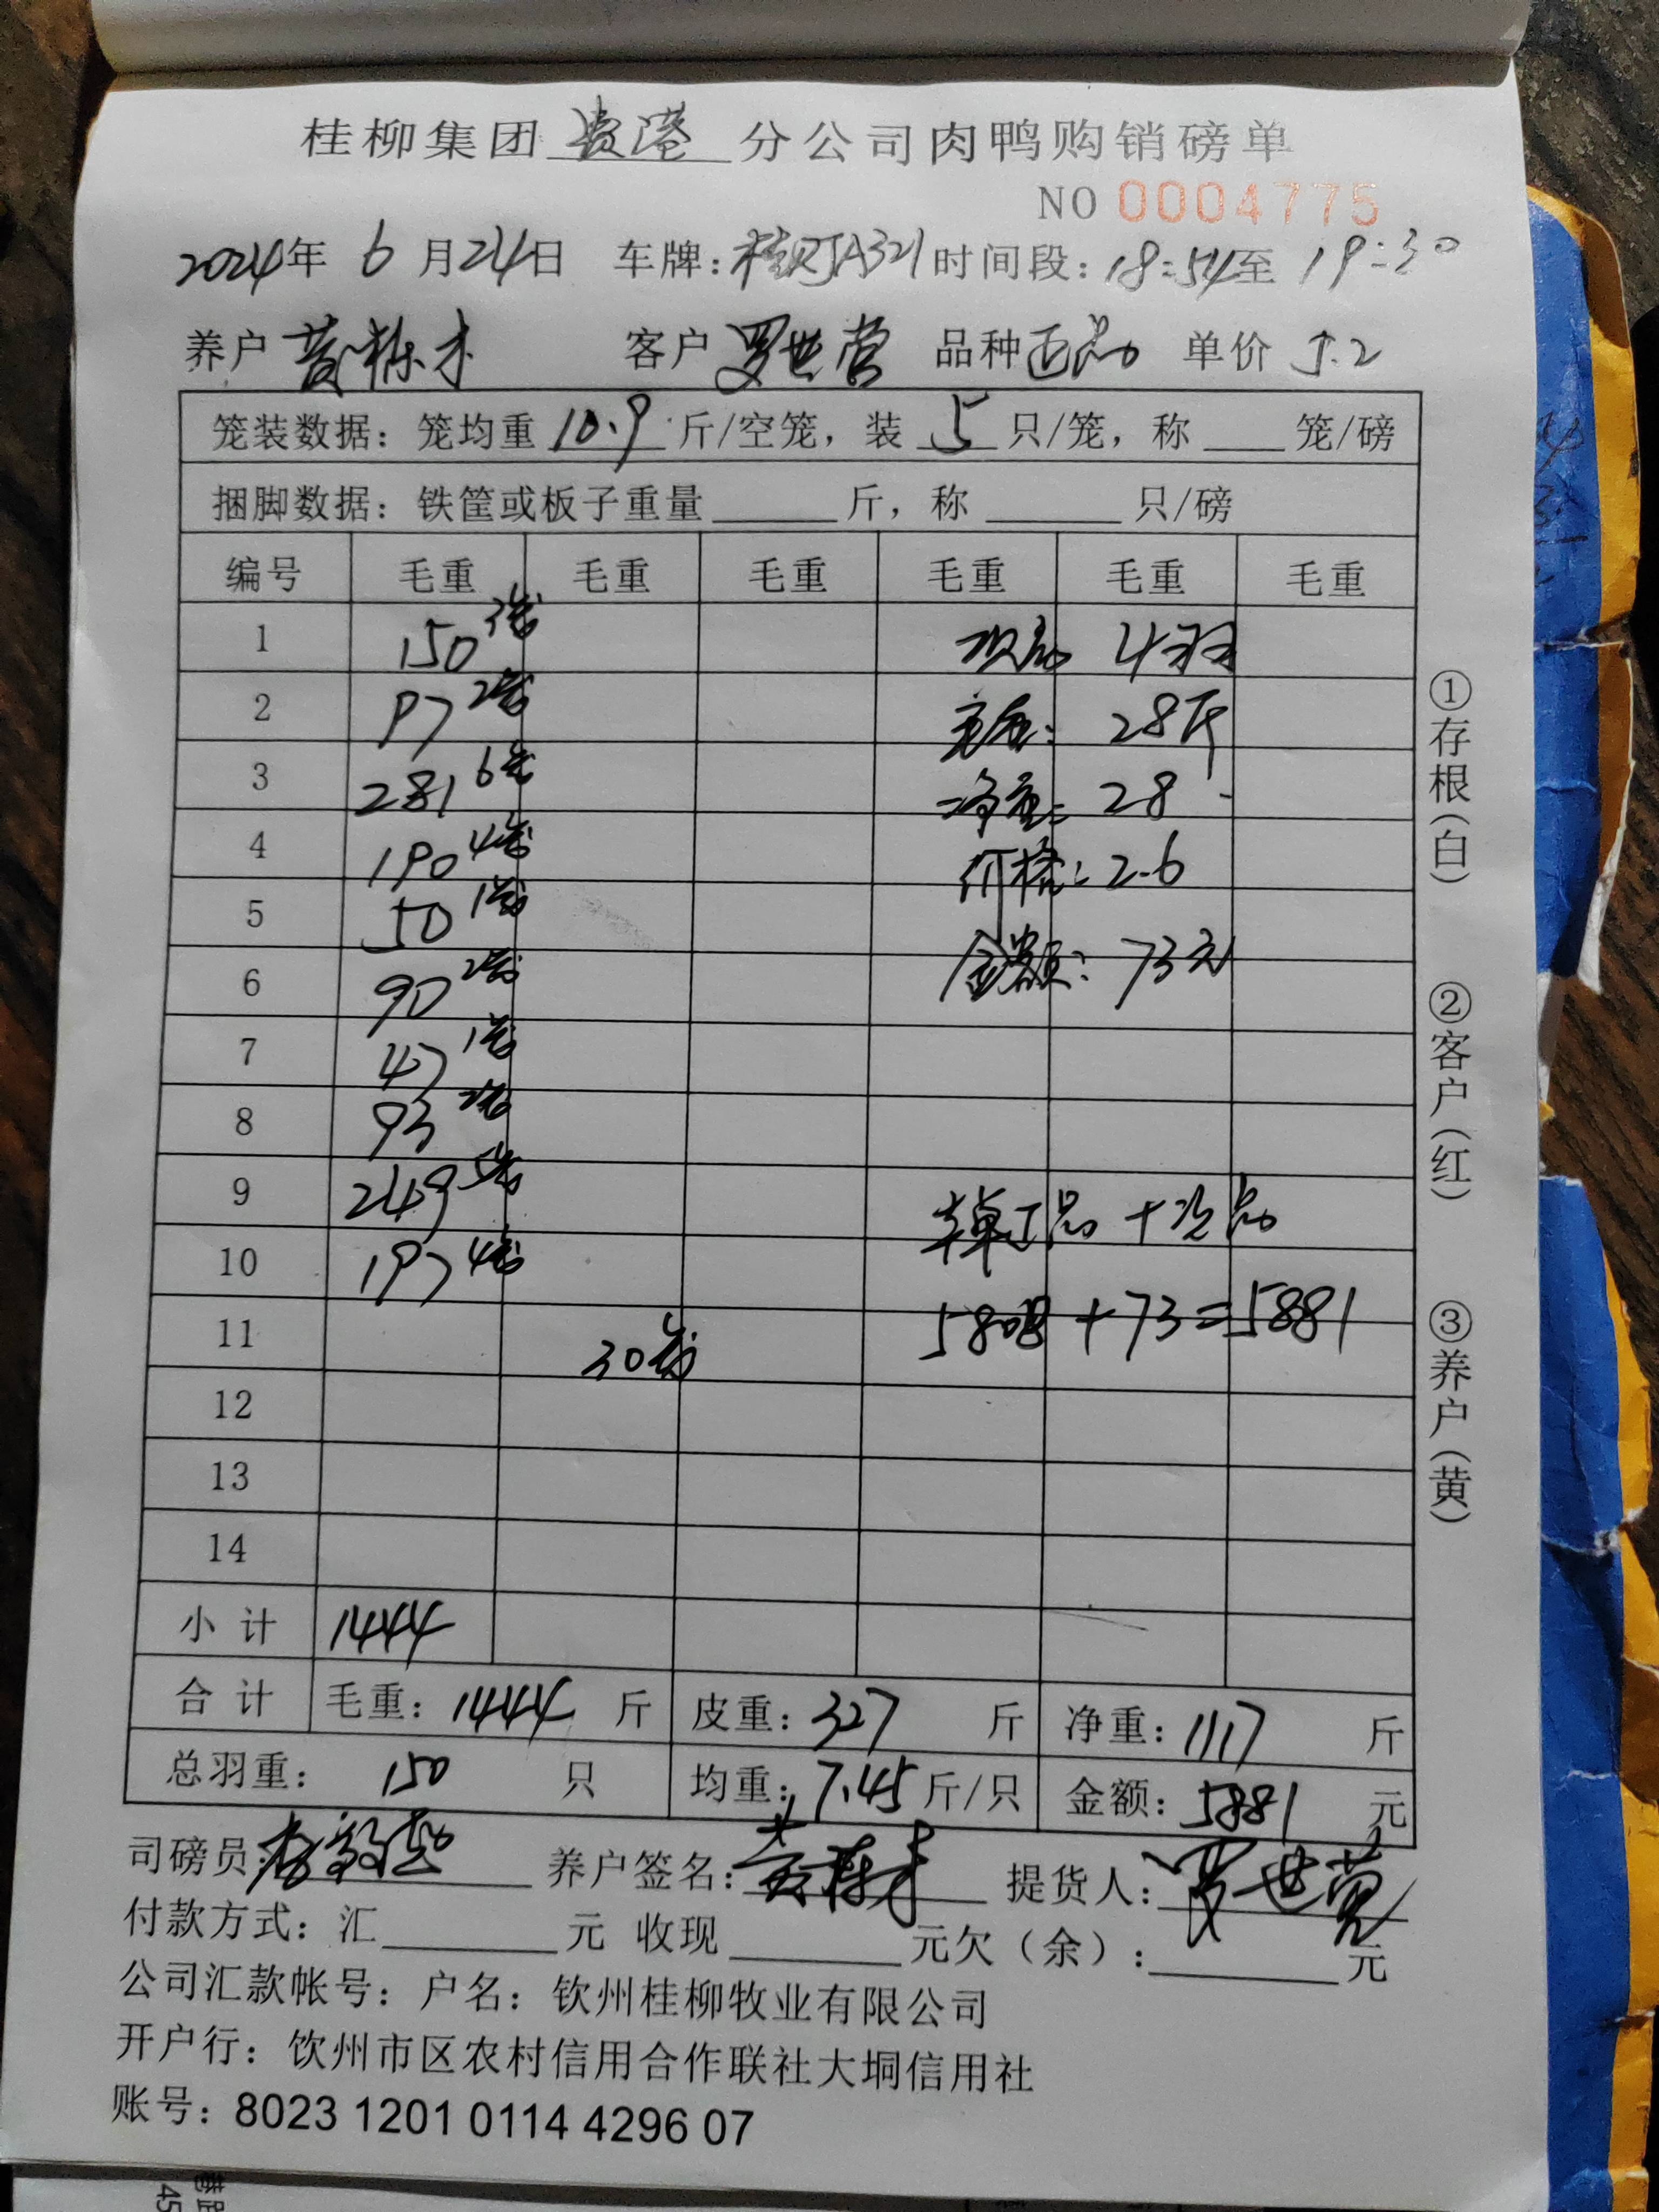 桂柳集团 贵港 分公司肉鸭购销磅单
NO 0004775
2024年 6 月 24 日 车牌: 桂RJA321 时间段: 18:54 至 19:30
养户 黄栋才 客户 罗世营 品种 正品 单价 5.2
笼装数据: 笼均重 10.9 斤/空笼, 装 5 只/笼, 称 ____ 笼/磅
捆脚数据: 铁筐或板子重量 ______ 斤, 称 ______ 只/磅
编号 毛重 毛重 毛重 毛重 毛重 毛重
1 150 3笼 次品 4羽
2 97 2笼 毛重: 28斤
3 281 6笼 净重: 28
4 190 4笼 价格: 2.6
5 50 1笼
6 90 2笼 金额: 73元
7 47 1笼
8 93 2笼
9 249 5笼 正品 + 次品
10 197 4笼
11 30笼 5808 + 73 = 5881
12
13
14
小 计 1444
合 计 毛重: 1444 斤 皮重: 327 斤 净重: 1117 斤
总羽重: 150 只 均重: 7.45 斤/只 金额: 5881 元
司磅员: 养户签名: 黄栋才 提货人: 罗世营
付款方式: 汇 ________ 元 收现 ________ 元欠(余): ________ 元
公司汇款帐号: 户名: 钦州桂柳牧业有限公司
开户行: 饮州市区农村信用合作联社大垌信用社
账号: 8023 1201 0114 4296 07
①存根(白)
②客户(红)
③养户(黄)
45